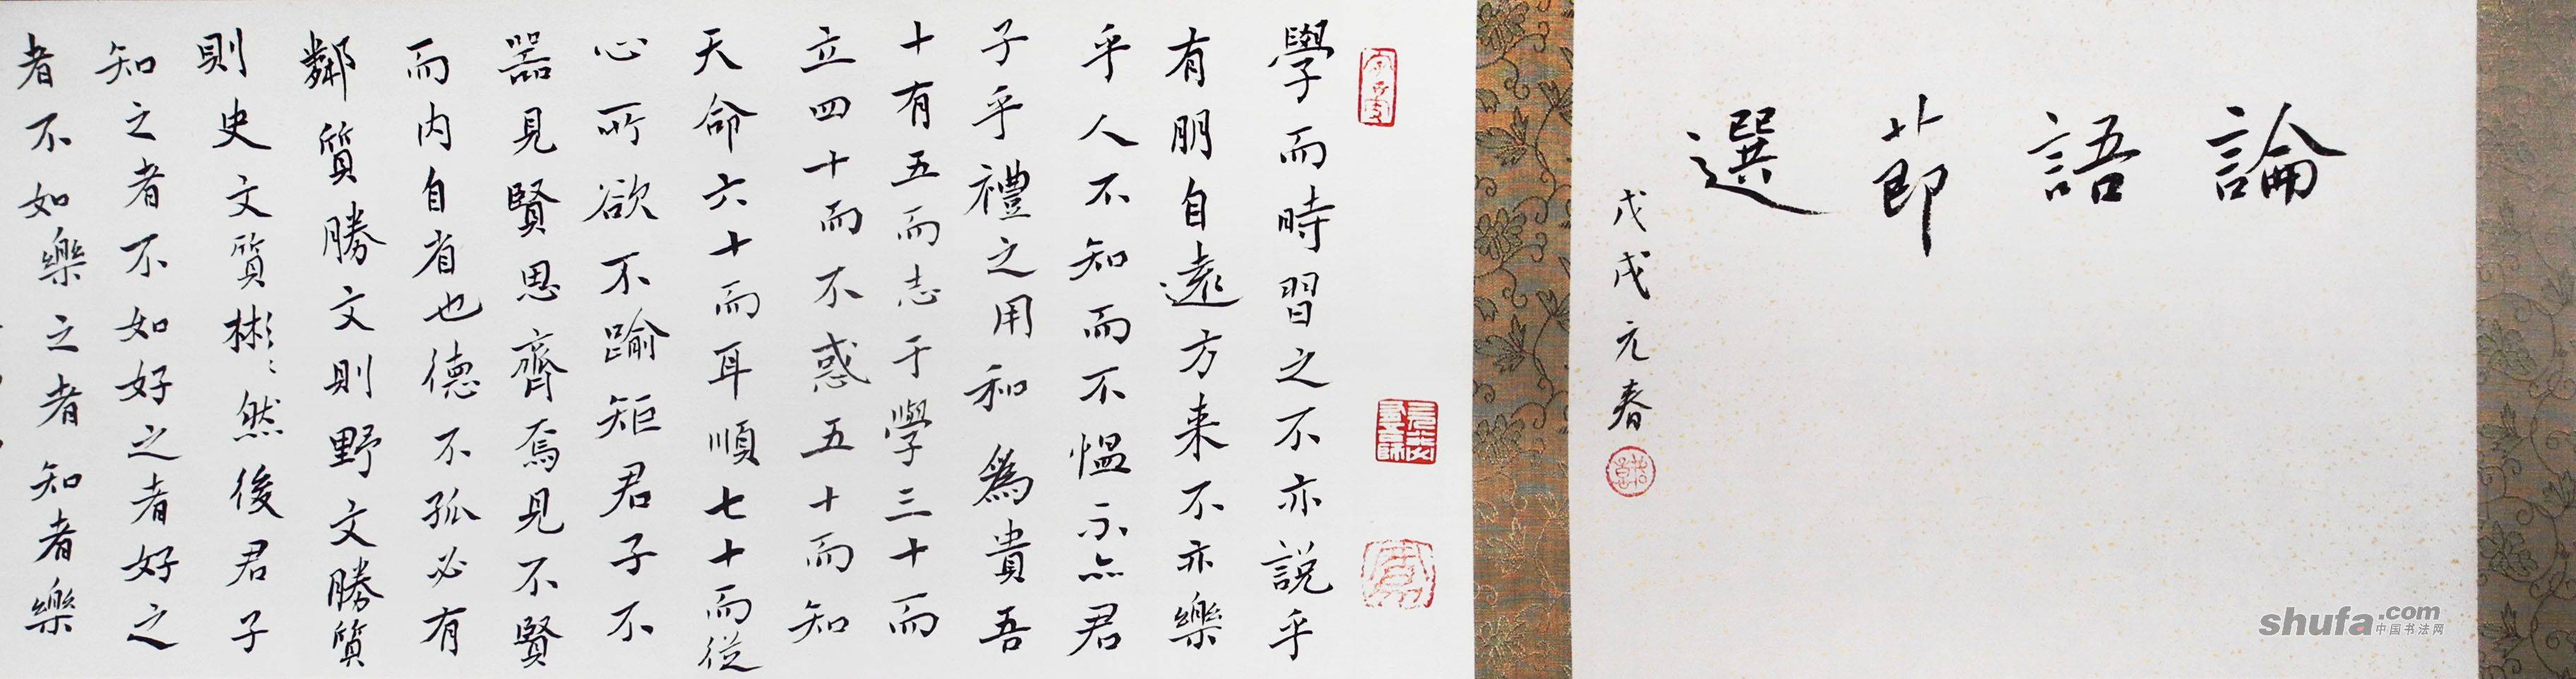 論語節選
戊戌元春
學而時習之不亦説乎
有朋自遠方来不亦樂
乎人不知而不愠不亦君
子乎禮之用和為貴吾
十有五而志于學三十而
立四十而不惑五十而知
天命六十而耳順七十而從
心所欲不踰矩君子不
器見賢思齊焉見不賢
而内自省也德不孤必有
鄰質勝文則野文勝質
則史文質彬々然後君子
知之者不如好之者好之
者不如樂之者知者樂
shufa.com
中国书法网